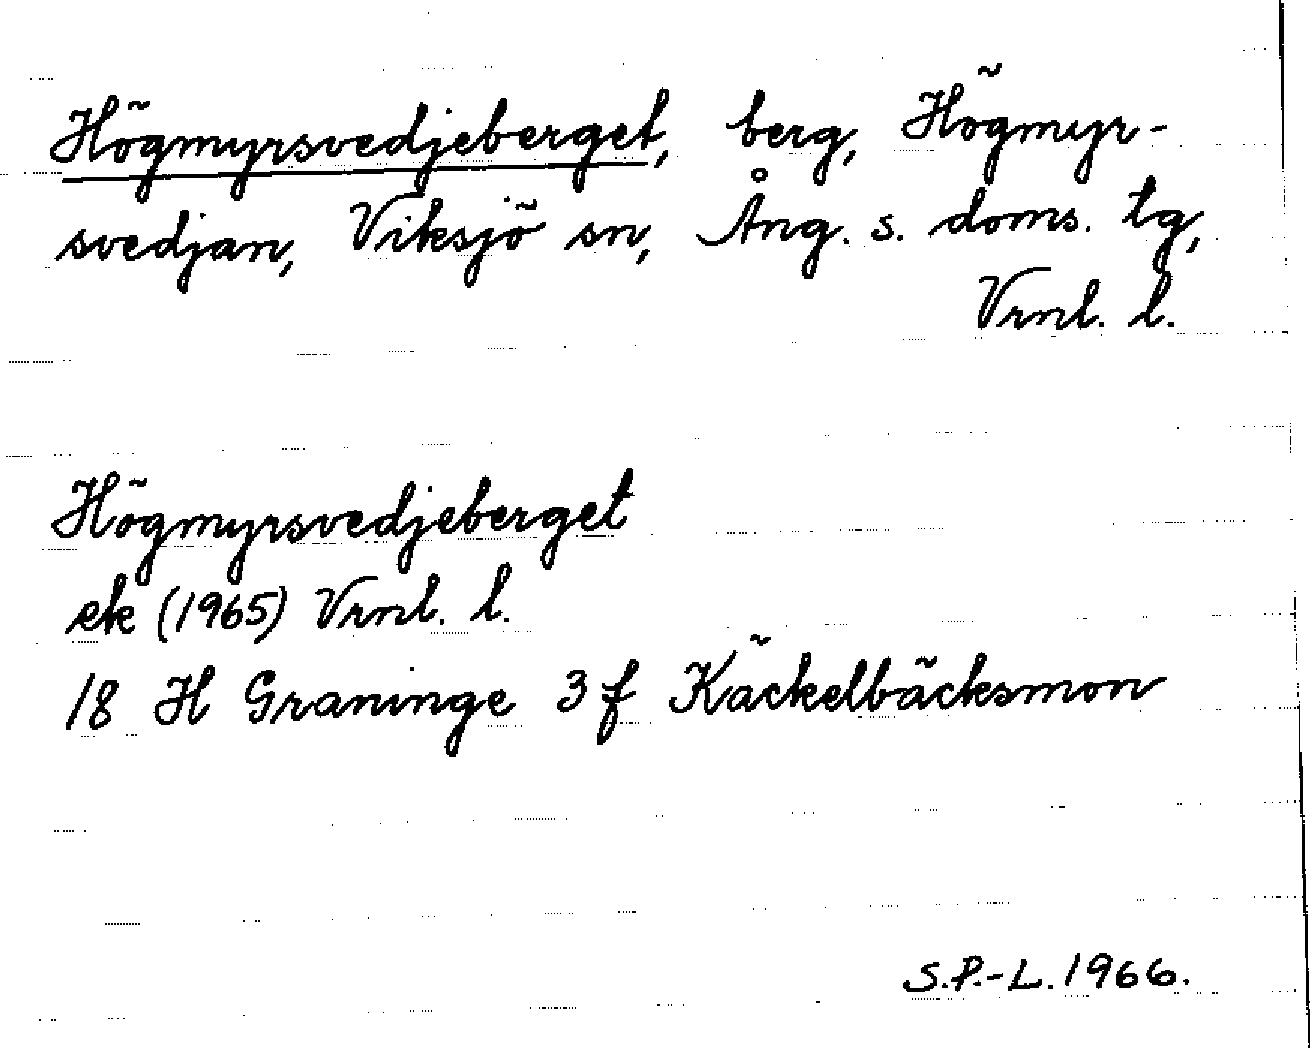 Högmyrsvedjeberget, berg, Högmyr-
svedjan, Viksjö sn, Ång. s. doms. tg,
Vrnl. l.
Högmyrsvedjeberget
ek (1965) Vrnl. l.
18 H Graninge 3 f Käckelbäcksmon
S.P.-L. 1966.